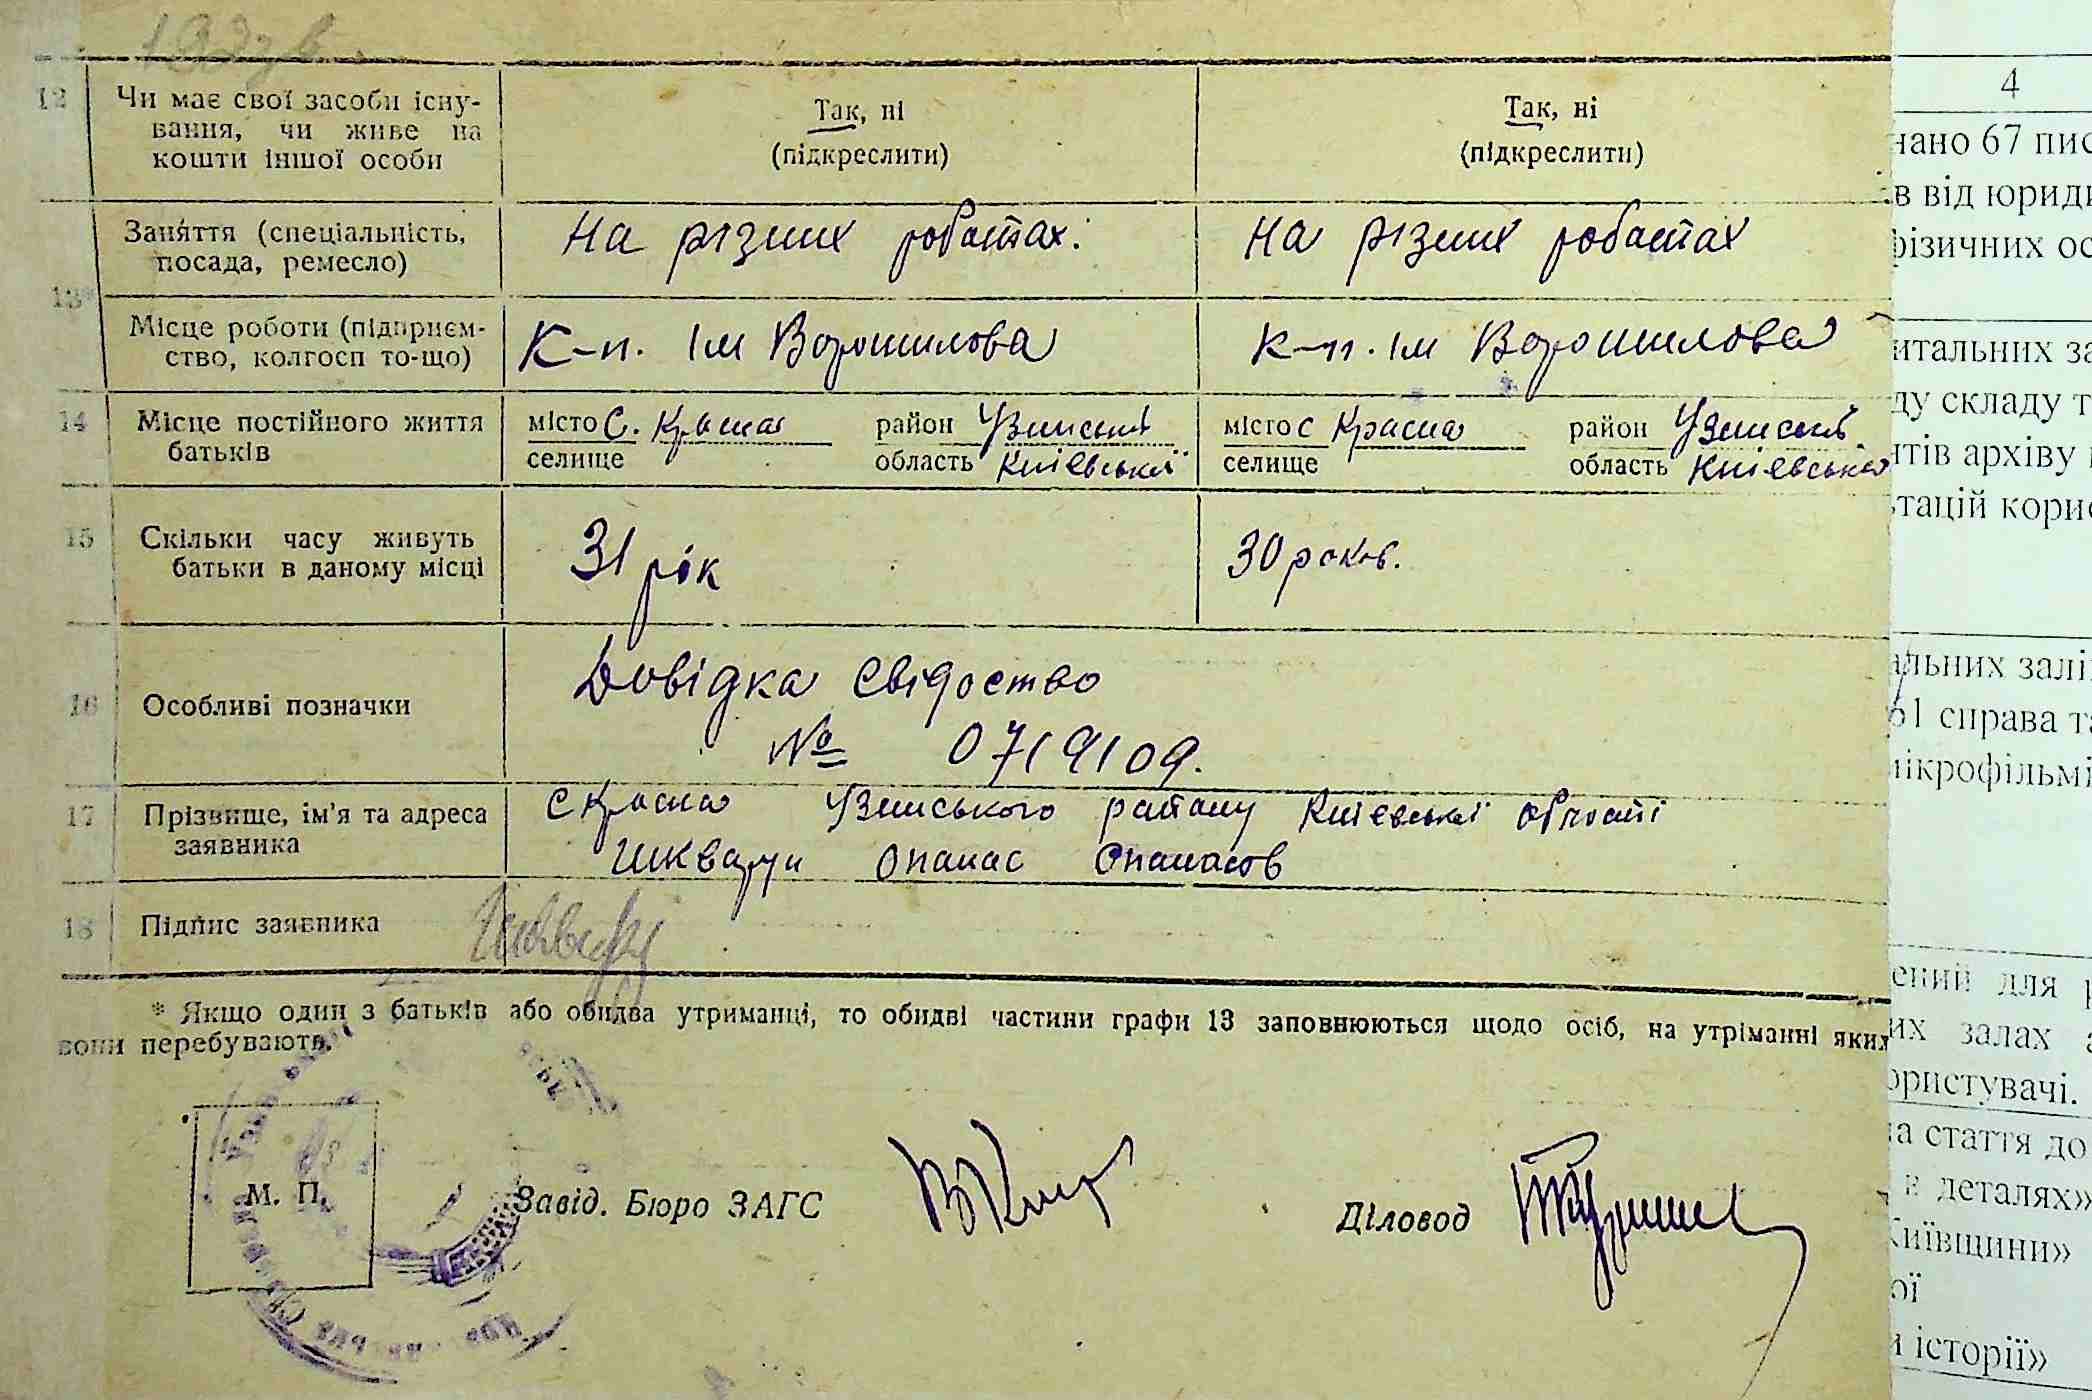 12 Чи має свої засоби існу-
вання, чи живе на
кошти іншої особи
Так, ні
(підкреслити)
Так, ні
(підкреслити)
13*
Заняття (спеціальність,
посада, ремесло)
На різних роботах.
На різних роботах
Місце роботи (підприєм-
ство, колгосп то-що)
К-п. Ім Ворошилова
К-п. Ім Ворошилова
14 Місце постійного життя
батьків
місто С. Красна район Узинський
селище область Київської
місто с Красна район Узинський
селище область Київська
15 Скільки часу живуть
батьки в даному місці
31 рік
30 років.
16 Особливі позначки
Довідка Свідоство
№ 0719109.
17 Прізвище, ім'я та адреса
заявника
с Красна Узинського району Київської області
Шквара Опанас Опанасов
18 Підпис заявника
* Якщо один з батьків або обидва утриманці, то обидві частини графи 13 заповнюються щодо осіб, на утріманні яких
вони перебувають.
М. П.
Завід. Бюро ЗАГС
Діловод
4
нано 67 пис
в від юриди
фізичних ос
итальних за
ду складу т
нтів архіву
ьтацій корис
альних залі
61 справа та
мікрофільмі
ений для р
их залах з
ористувачі.
на стаття до
в деталях»
Київщини»
ої
и історії»